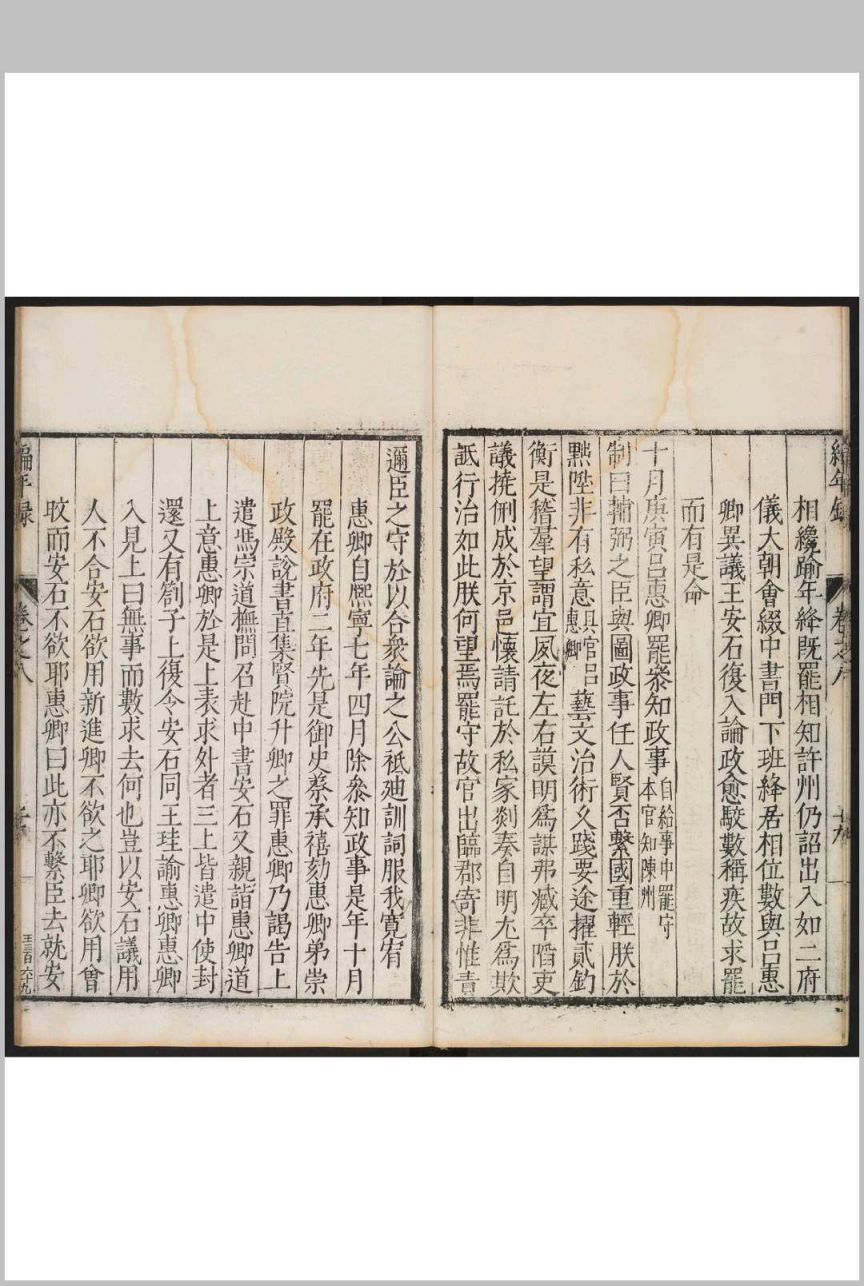 相纔踰年絳既罷相知許州仍詔出入如二府
儀大朝會綴中書門下班絳居相位數與呂惠
卿異議王安石復入論政愈駮數稱疾故求罷
而有是命
十月庚寅呂惠卿罷叅知政事自給事中罷守本官知陳州
制曰輔弼之臣與圖政事任人賢否繫國重輕朕於
黜陟非有私意具官呂惠卿藝文治術夊踐要途擢貳鈞
衡是稽羣望謂宜夙夜左右謨明爲謀弗臧卒䧟吏
議撓俐成於京邑懷請託於私家剡奏自明尢爲欺
詆行治如此朕何望焉罷守故官出臨郡寄非惟責
邇臣之守於以合衆論之公袛廸訓詞服我寬宥
惠卿自熈寧七年四月除叅知政事是年十月
罷在政府二年先是御史蔡承禧劾惠卿弟崇
政殿說書直集賢院升卿之罪惠卿乃謁告上
遣馮宗道撫問召赴中書安石又親詣惠卿道
上意惠卿於是上表求外者三上皆遣中使封
還又有劄子上復令安石同王珪諭惠卿惠卿
入見上曰無事而數求去何也豈以安石議用
人不合安石欲用新進卿不欲之耶卿欲用曾
旼而安石不欲耶惠卿曰此亦不繫臣去就安
編年錄 卷之八